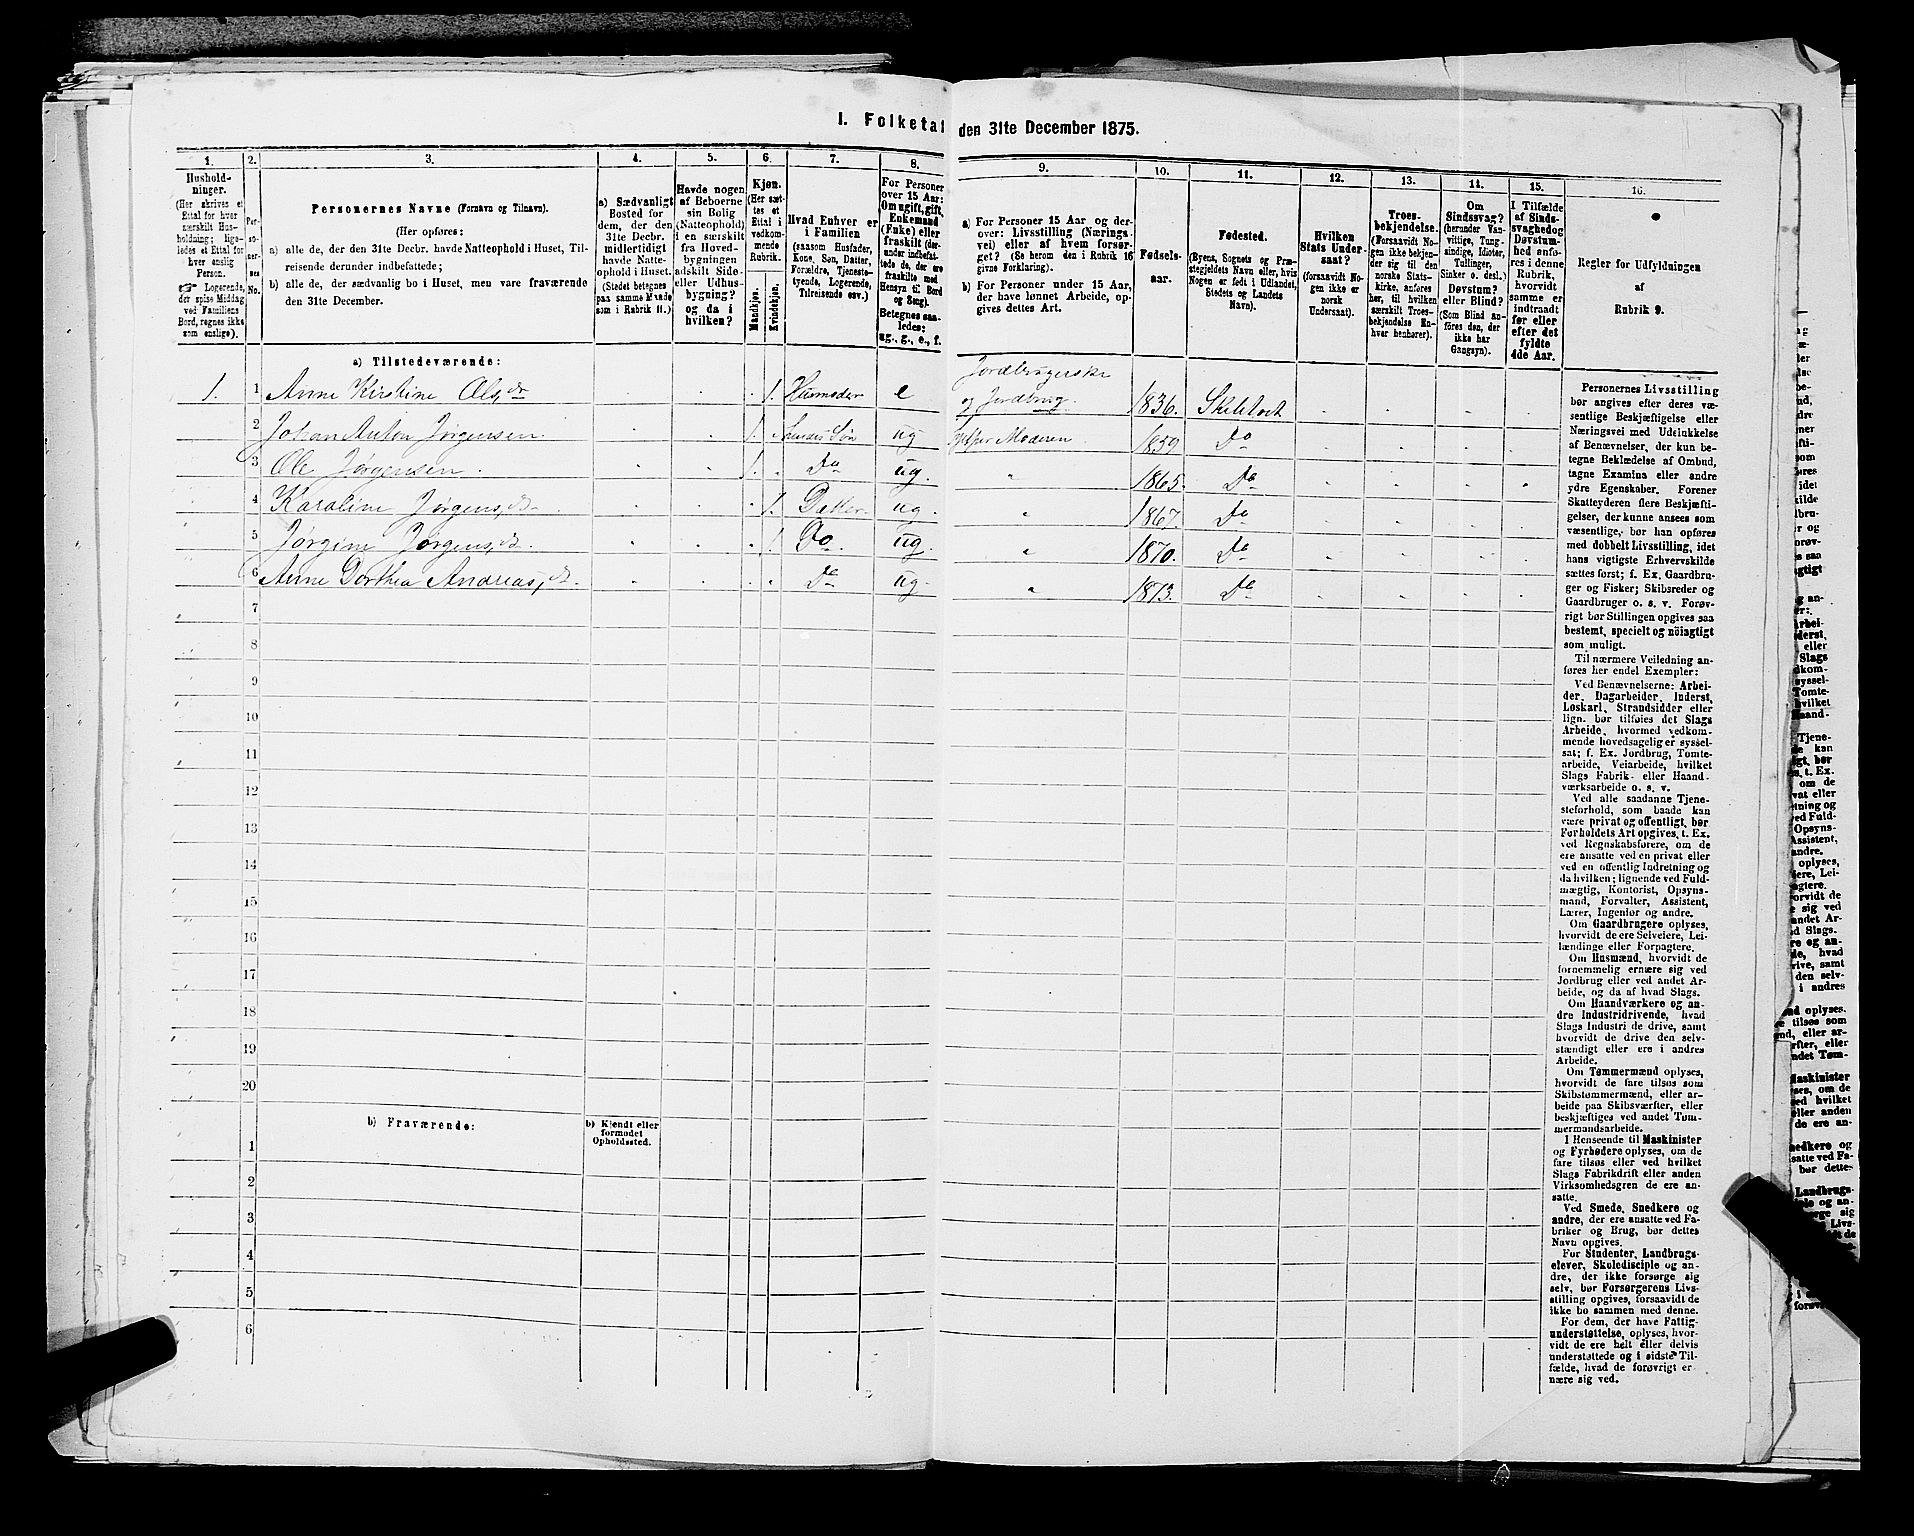 1. Folketal den 31te December 1875.
1. 2. 3. 4. 5. 6. 7. 8. 9. 10. 11. 12. 13. 14. 15. 16.
Hushold-
ninger.
(Her skrives et
Ettal for hver
særskilt Hus-
holdning; lige-
ledes et Ettal for
hver enslig
Person.
☛ Logerende,
der spise Middag
ved Familiens
Bord, regnes ikke
som enslige).
Per-
so-
ner-
nes
No.
Personernes Navne (Fornavn og Tilnavn).
(Her opføres:
a) alle de, der den 31te Decbr. havde Natteophold i Huset, Til-
reisende derunder indbefattede;
b) alle de, der sædvanlig bo i Huset, men vare fraværende
den 31te December.
a) Sædvanligt
Bosted for
dem, der den
31te Decbr.
midlertidigt
havde Natte-
ophold i Huset.
(Stedet betegnes
paa samme Maade
som i Rubrik 11.)
Havde nogen
af Beboerne
sin Bolig
(Natteophold)
i en særskilt
fra Hoved-
bygningen
adskilt Side-
eller Udhus-
bygning?
og da i
hvilken?
Kjøn.
(Her sæt-
tes et
Ettal i
vedkom-
mende
Rubrik.
Mandkjøn.
Kvindekjøn.
Hvad Enhver er
i Familien
(saasom Husfader,
Kone, Søn, Datter,
Forældre, Tjeneste-
tyende, Logerende,
Tilreisende osv.)
For Personer
over 15 Aar:
Om ugift, gift,
Enkemand
(Enke) eller
fraskilt (der-
under indbefat-
tede de, der ere
fraskilte med
Hensyn til Bord
og Seng).
Betegnes saa-
ledes:
ug., g., e., f.
a) For Personer 15 Aar og der-
over: Livsstilling (Nærings-
vei) eller af hvem forsør-
get? (Se herom den i Rubrik 16
givne Forklaring).
b) For Personer under 15 Aar,
der have lønnet Arbeide, op-
gives dettes Art.
Fødsels-
aar.
Fødested.
(Byens, Sognets og Præ-
stegjeldets Navn eller, hvis
Nogen er født i Udlandet,
Stedets og Landets
Navn).
Hvilken
Stats Under-
saat?
(forsaavidt No-
gen ikke er
norsk
Undersaat).
Troes-
bekjendelse.
(Forsaavidt No-
gen ikke bekjen-
der sig til den
norske Stats-
kirke, anføres
her, til hvilken
særskilt Troes-
bekjendelse En-
hver henhører).
Om
Sindssvag?
(herunder Van-
vittige, Tung-
sindige, Idioter,
Tullinger,
Sinker o. desl.)
Døvstum?
eller Blind?
(Som Blind an-
føres den, der
ikke har
Gangsyn).
I Tilfælde
af Sinds-
svaghed og
Døvstum-
hed anfø-
res i denne
Rubrik,
hvorvidt
samme er
indtraadt
før eller
efter det
fyldte
4de Aar.
Regler for Udfyldningen
af
Rubrik 9.
a) Tilstedeværende:
Jordbrugerske
1. 1 Anne Kirstine Olsdr 1. Husmoder e og Jordbrug. 1836.
2 Johan Anton Jørgensen 1. Søn ug Moderen 1859 Do
3 Ole Jørgensen 1. Do ug. " 1865. Do
4 Karoline Jørgensd. 1. Datter ug. " 1867. Do
5 Jørgine Jørgensd. 1. Do. ug. " 1870. Do
6 Anne Dorthea Andreasd. Do ug. " 1873. Do
7
8
9
10
11
12
13
14
15
16
17
18
19
20
b) Fraværende:
b) Kjendt eller
formodet
Opholdssted.
1
2
3
4
5
6
Personernes Livsstilling
bør angives efter deres væ-
sentlige Beskjæftigelse eller
Næringsvei med Udelukkelse
af Benævnelser, der kun be-
tegne Beklædelse af Ombud,
tagne Examina eller andre
ydre Egenskaber. Forener
Skatteyderen flere Beskjæfti-
gelser, der kunne ansees som
væsentlige, bør han opføres
med dobbelt Livsstilling, idet
hans vigtigste Erhvervskilde
sættes først; f. Ex. Gaardbru-
ger og Fisker; Skibsreder og
Gaardbruger o. s. v. Forøv-
rigt bør Stillingen opgives saa
bestemt, specielt og nøiagtigt
som muligt.
Til nærmere Veiledning an-
føres her endel Exempler:
Ved Benævnelserne: Arbei-
der, Dagarbeider, Inderst,
Løskarl, Strandsidder eller
lign. bør tilføies det Slags
Arbeide, hvormed vedkom-
mende hovedsagelig er syssel-
sat; f. Ex. Jordbrug, Tomte-
arbeide, Veiarbeide, hvilket
Slags Fabrik- eller Haand-
værksarbeide o. s. v.
Ved alle saadanne Tjene-
steforhold, som baade kan
være privat og offentligt, bør
Forholdets Art opgives, t. Ex.
ved Regnskabsførere, om de
ere ansatte ved en privat eller
ved en offentlig Indretning og
da hvilken; lignende ved Fuld-
mægtig, Kontorist, Opsyns-
mand, Forvalter, Assistent,
Lærer, Ingeniør og andre.
Om Gaardbrugere oplyses,
hvorvidt de ere Selveiere, Lei-
lændinge eller Forpagtere.
Om Husmænd, hvorvidt de
fornemmelig ernære sig ved
Jordbrug eller ved andet Ar-
beide, og da af hvad Slags.
Om Haandværkere og an-
dre Industridrivende, hvad
Slags Industri de drive, samt
hvorvidt de drive den selv-
stændigt eller ere i andres
Arbeide.
Om Tømmermænd oplyses,
hvorvidt de fare tilsøs som
Skibstømmermænd, eller ar-
beide paa Skibsværfter, eller
beskjæftiges ved andet Tøm-
mermandsarbeide.
I Henseende til Maskinister
og Fyrbødere oplyses, om de
fare tilsøs eller ved hvilket
Slags Fabrikdrift eller anden
Virksomhedsgren de ere an-
satte.
Ved Smede, Snedkere og
andre, der ere ansatte ved Fa-
briker og Brug, bør dettes
Navn opgives.
For Studenter, Landbrugs-
elever, Skoledisciple og an-
dre, der ikke forsørge sig
selv, bør Forsørgerens Livs-
stilling opgives, forsaavidt de
ikke bo sammen med denne.
For dem, der have Fattig-
understøttelse, oplyses, hvor-
vidt de ere helt eller delvis
understøttede og i sidste Til-
fælde, hvad de forøvrigt er-
nære sig ved.